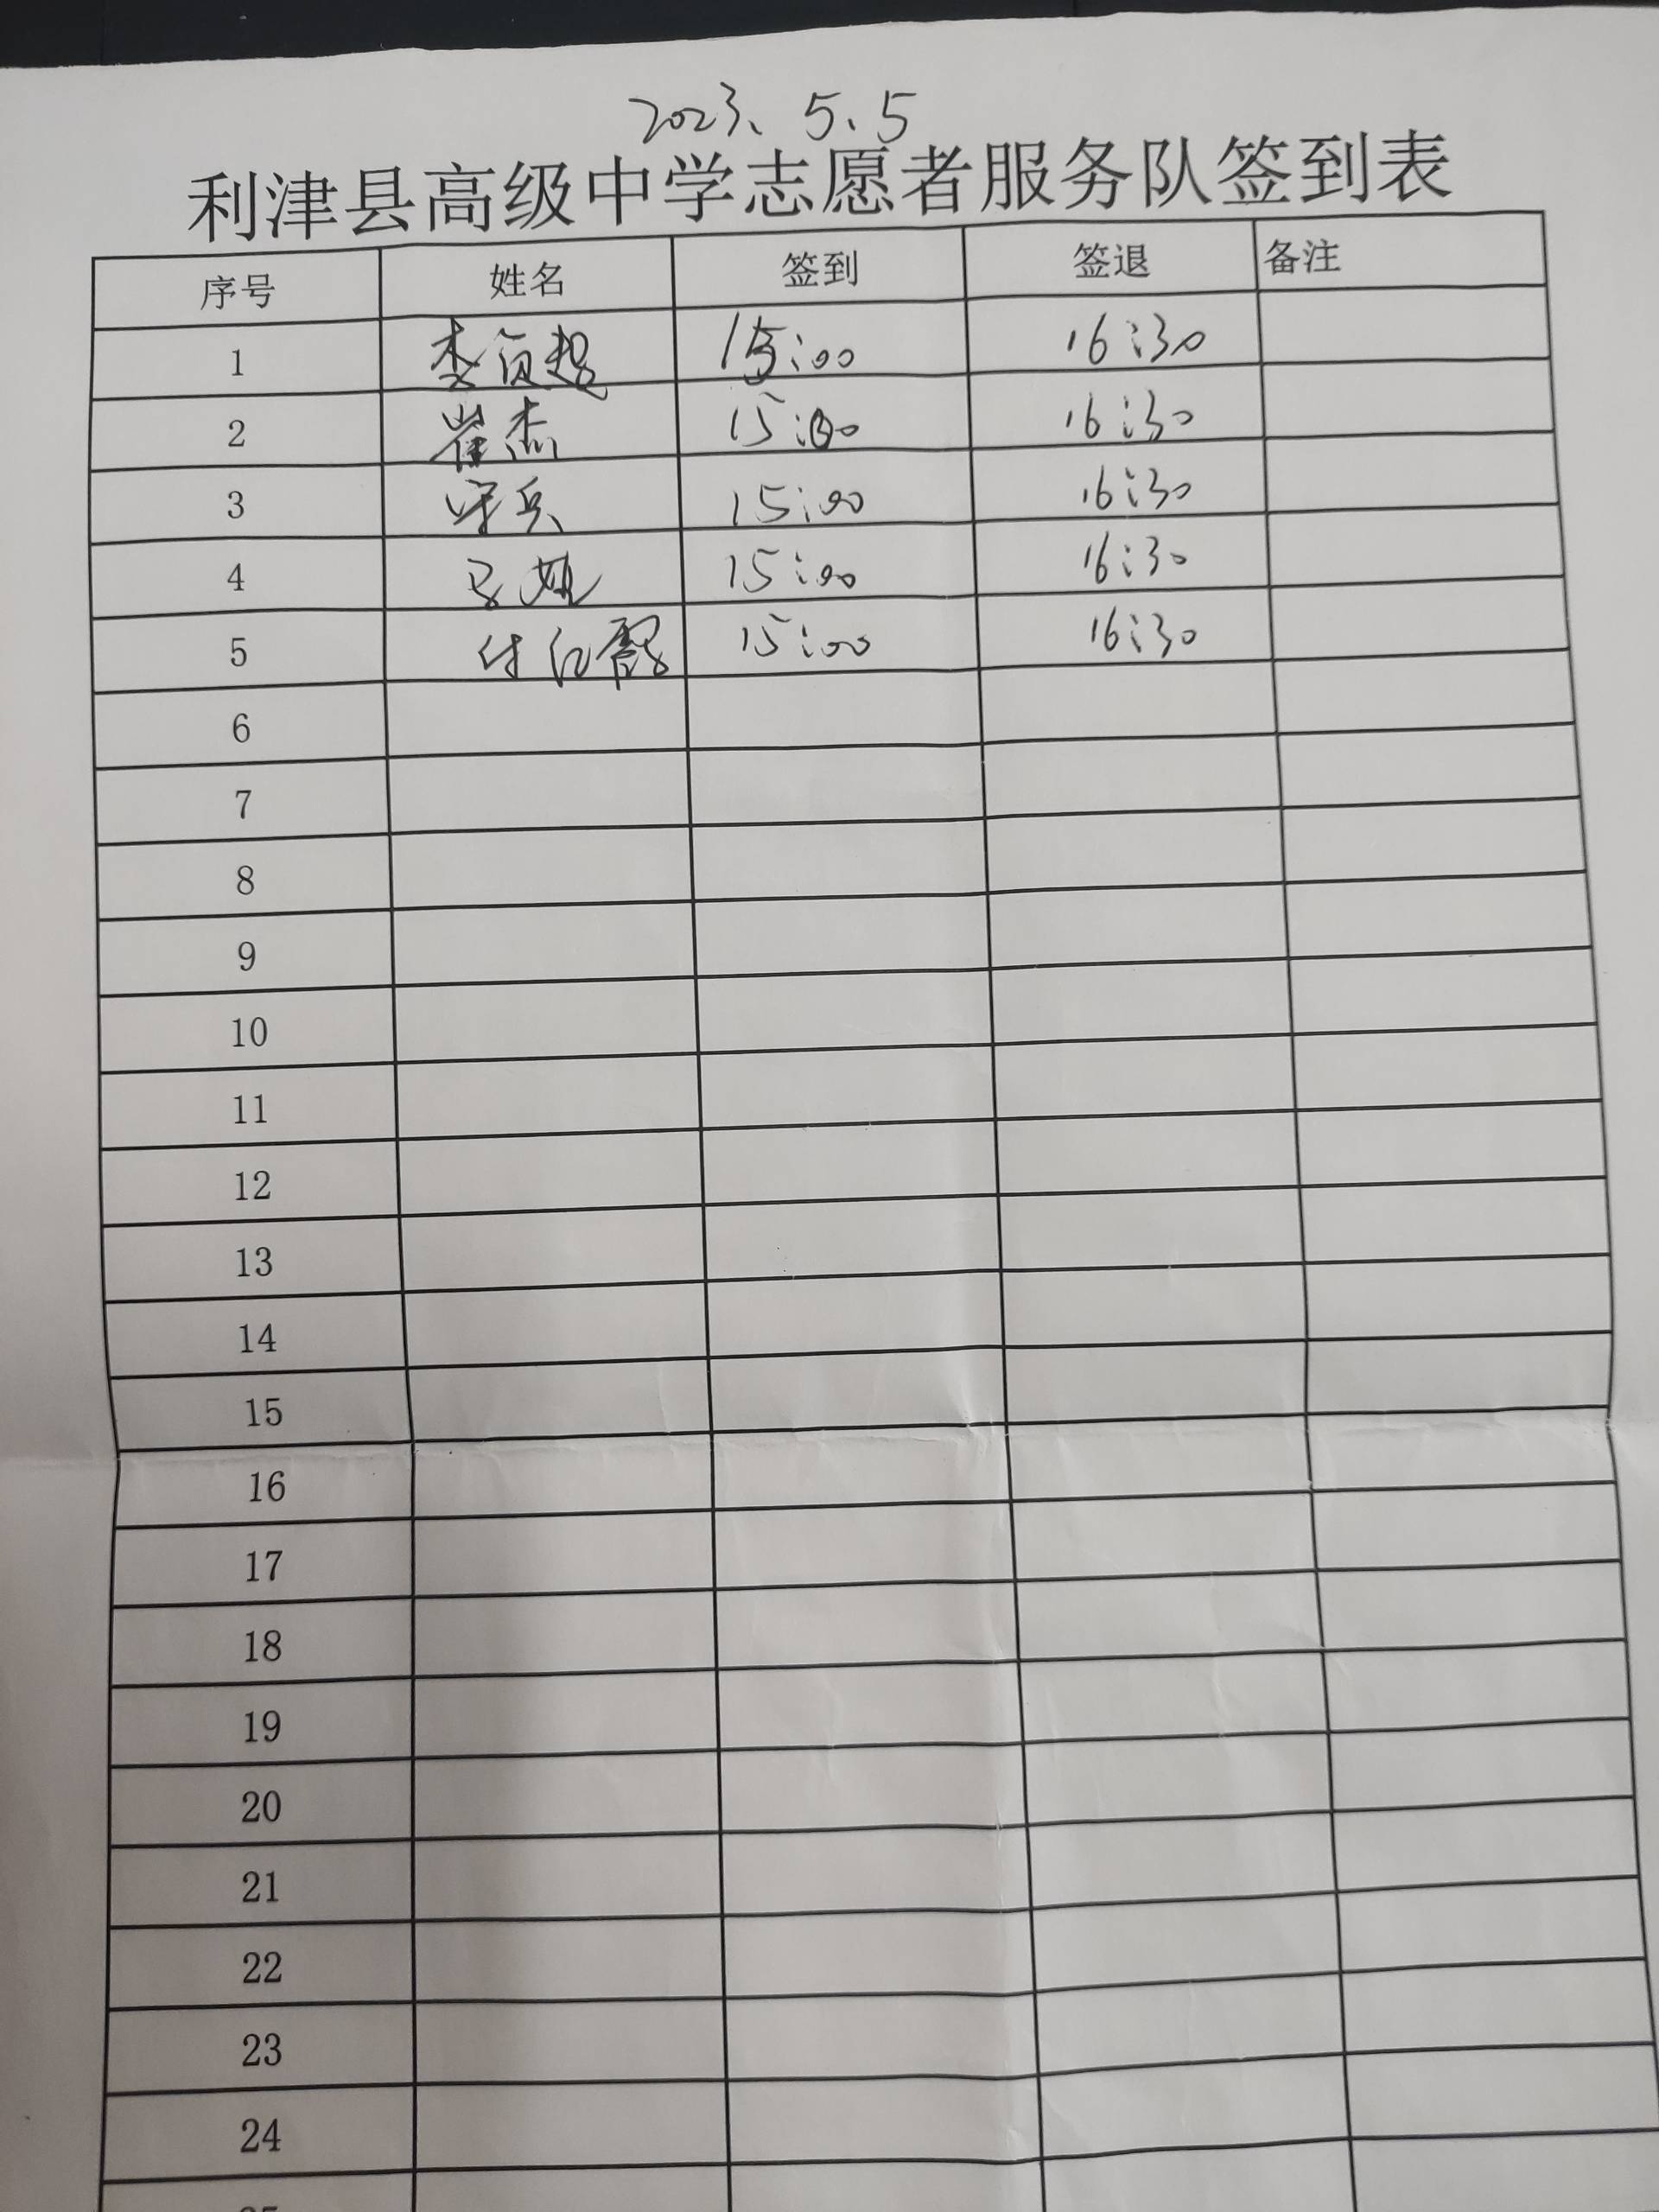 2023、5、5
利津县高级中学志愿者服务队签到表
序号 姓名 签到 签退 备注
1 15:00 16:30
2 崔杰 15:00 16:30
3 15:00 16:30
4 15:00 16:30
5 15:00 16:30
6
7
8
9
10
11
12
13
14
15
16
17
18
19
20
21
22
23
24